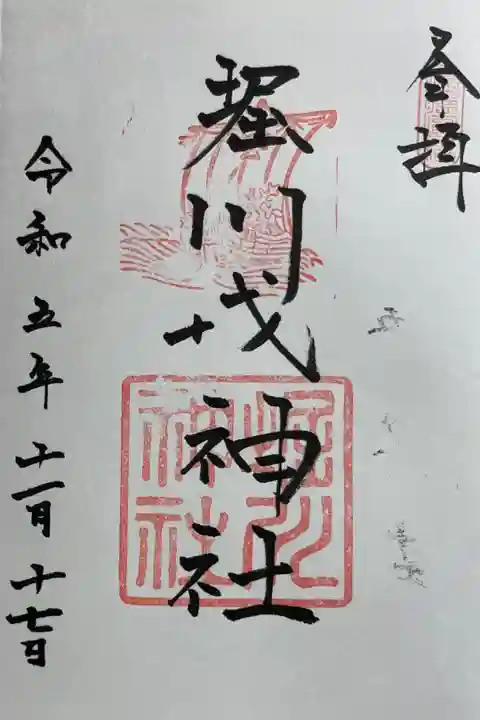 奉拝
堀川戎神社
令和五年十一月十七日
堀川
神社